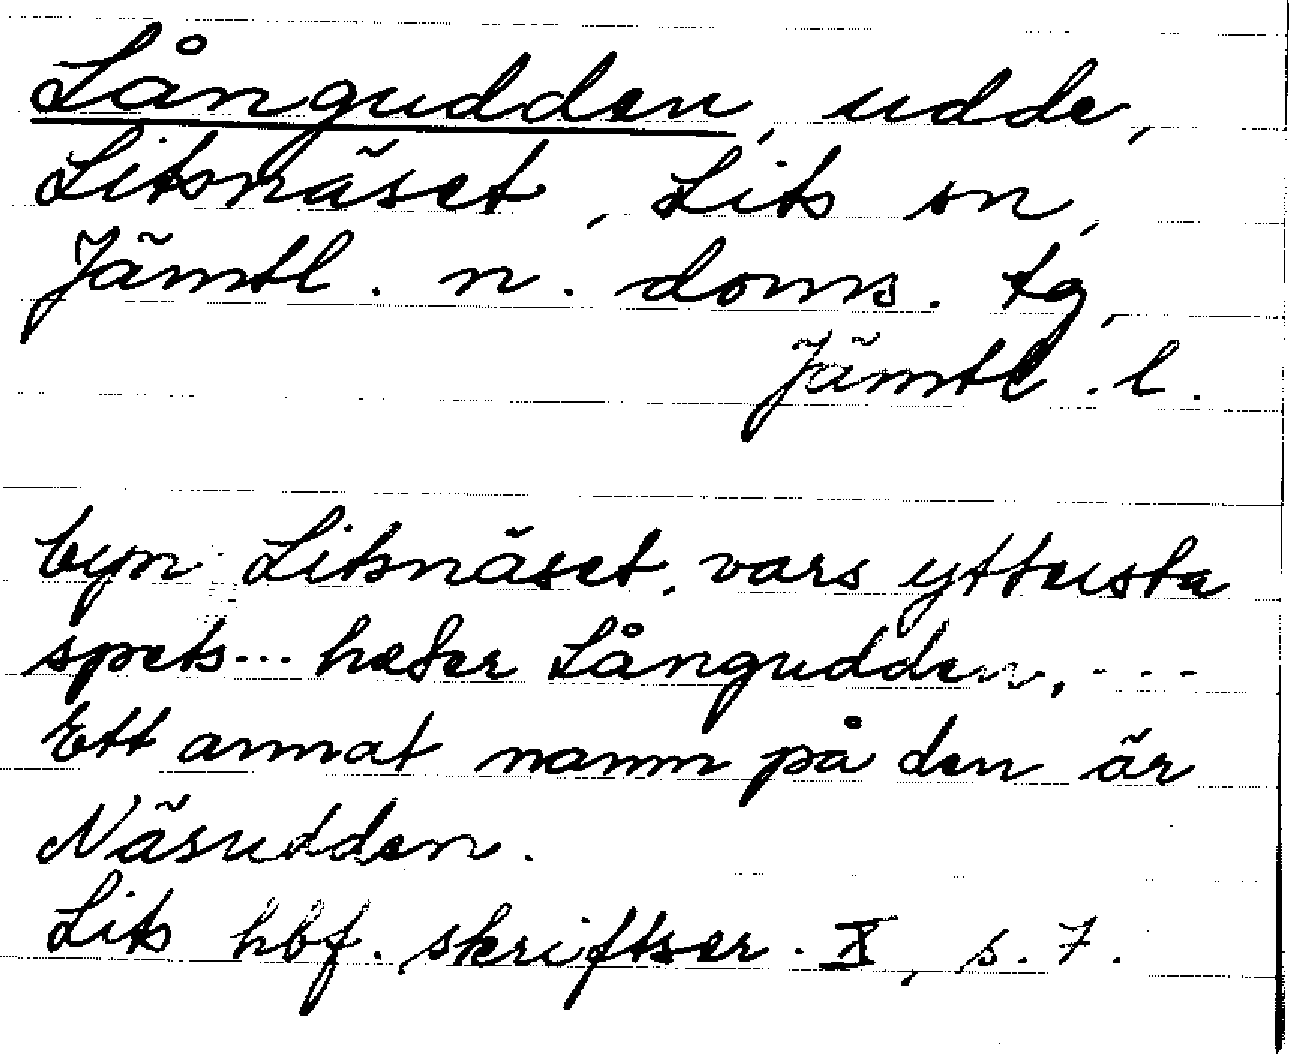 Långudden, udde,
Litsnäset, Lits sn,
Jämtl. n. doms. tg,
Jämtl. l.
byn Litsnäset, vars yttersta
spets... heter Långudden, ...
Ett annat namn på den är
Näsudden.
Lits hbf. skriftser. X, s. 7.